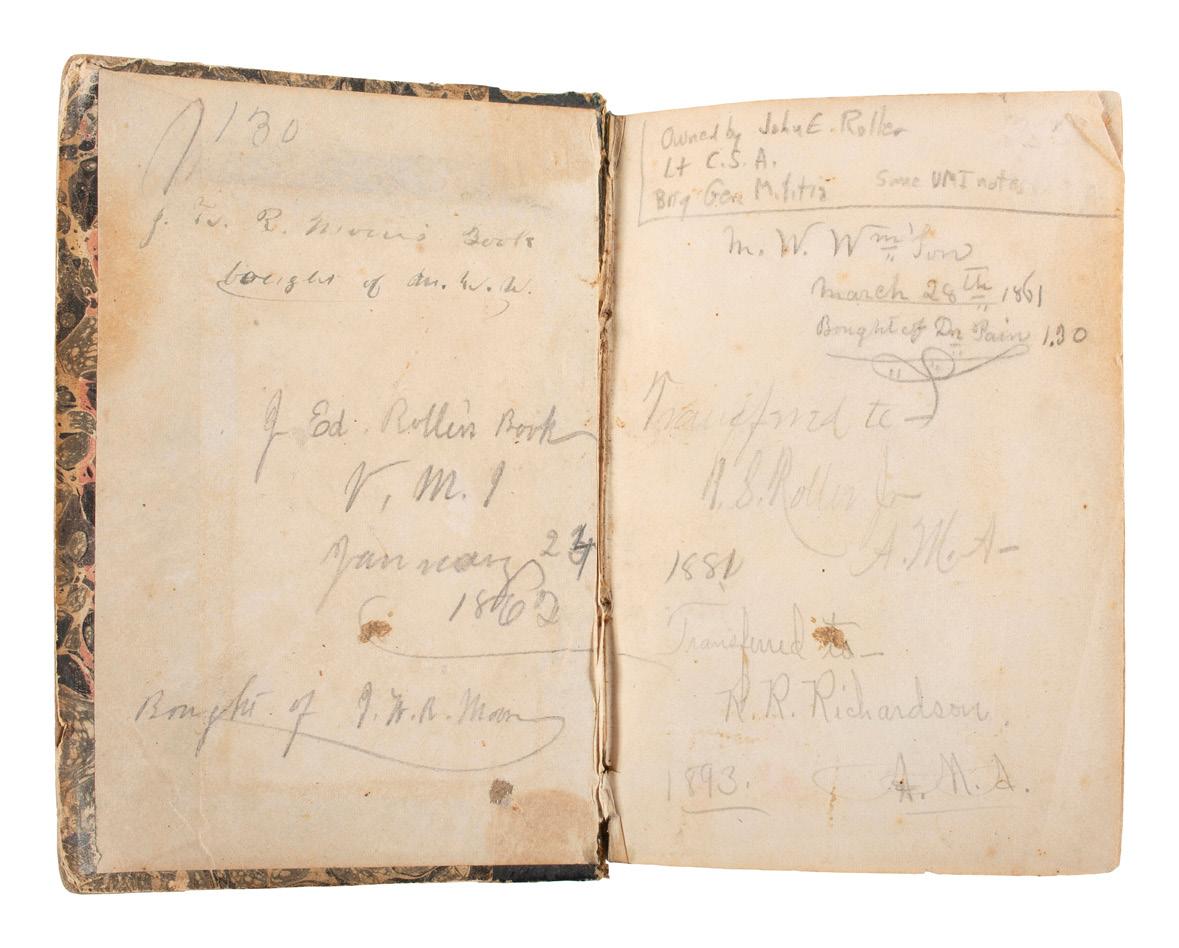 130
J. W. R. Moore's Book
bought of M. W. W.
J Ed. Roller's Book
V. M. I
January 24
1862
Bought of J. W. R. Moore
Owned by John E. Roller
Lt C.S.A.
Brig Gen Militia Some VMI notes
M. W. Wm'Son
March 28th 1861
Bought of Dr Pain 1.30
Transferred to
Roller Jr
A. M. A
1881
Transferred to
R. R. Richardson.
1893. A. M. A.